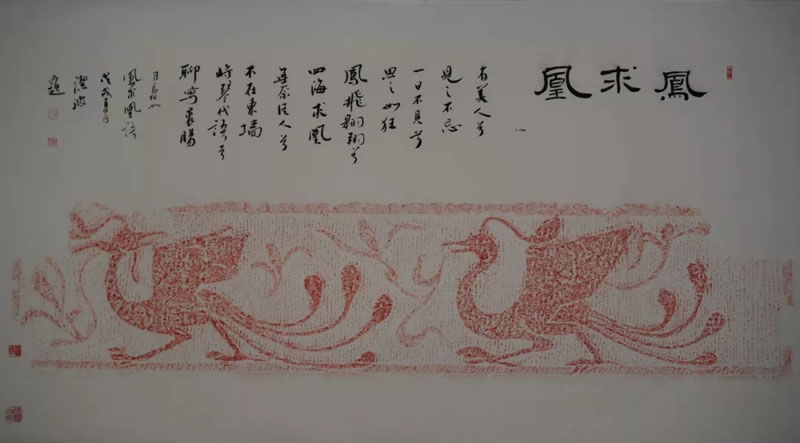 鳳求凰
有美人兮
見之不忘
一日不見兮
思之如狂
鳳飛翱翔兮
四海求凰
無奈佳人兮
不在東牆
將琴代語兮
聊寫衷腸
司馬相如
鳳求凰語
戊戌月